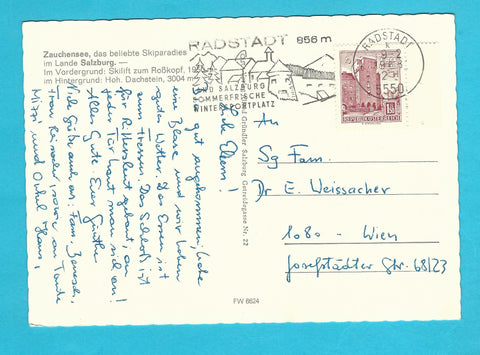 Zauchensee, das beliebte Skiparadies
im Lande Salzburg. —
Im Vordergrund: Skilift zum Roßkopf,
im Hintergrund: Hoh. Dachstein, 3004 m
RADSTADT 856 m
LAND SALZBURG
SOMMERFRISCHE
WINTERSPORTPLATZ
RADSTADT
5550
REPUBLIK ÖSTERREICH
Liebe Eltern!
Bin gut angekommen, habe
eine Blase und wir haben
gutes Wetter. Das Essen ist
zum Fressen. Das Schloß ist
für Ritterslent gebaut, an
jeder Tür haut man sich an!
Alles Gute. Euer Günther
Viele Grüße auch an Fam.
Frau Reinacher, sowie an Tante
Missi und Onkel Hans,
Gründler Salzburg Getreidegasse Nr. 22
An
Sg Fam.
Dr E. Weissacher
1080 - Wien
Josefstädter Str. 68/23
FW 6624